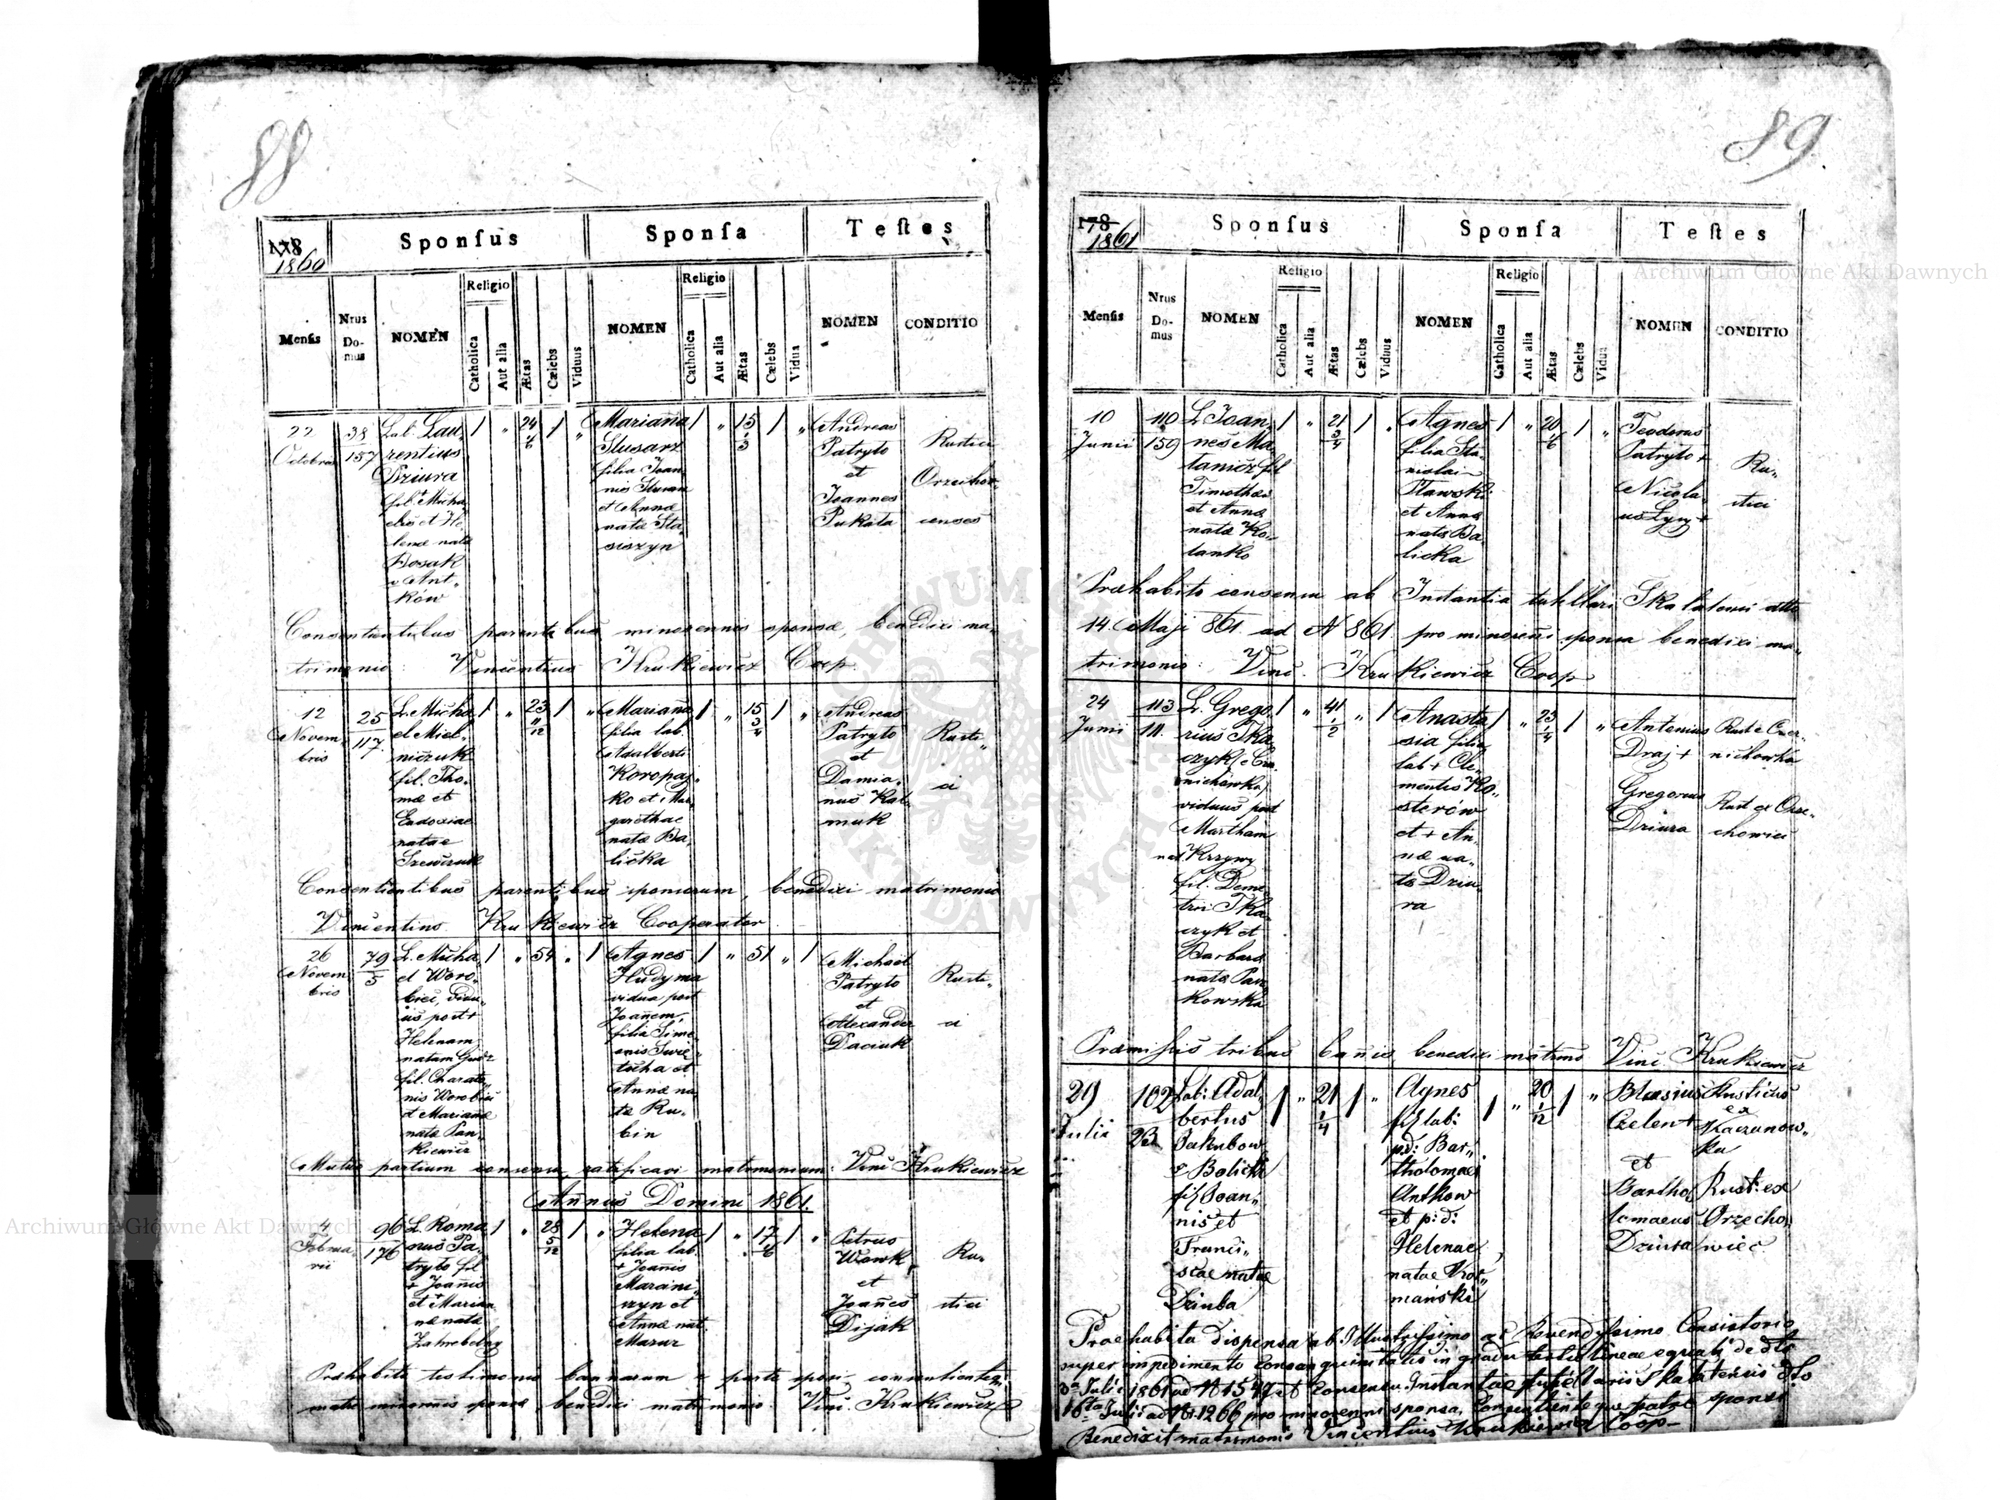 88
178
1860
Sponſus
Sponſa
Teſtes
Menſis
Nrus Do-mus
NOMEN
Religio
Catholica
Aut alia
Ætas
Cælebs
Viduus
NOMEN
Religio
Catholica
Aut alia
Ætas
Cælebs
Vidua
NOMEN
CONDITIO
22
Octobris
38
157
Lab. Lau-
rentius
Dziura
fil + Micha
elis et He
lena nata
Bosak
Ant-
ków
24
Marianna
Slusarz
filia Joan
nis Slusarz
et Anna
nata Sta
siszyn
15
Andreas
Patryło
et
Joannes
Pukała
Rustici
Orzecho
censes
Consentientibus parentibus minorennis sponsæ, benedixi ma-
trimonio: Vincentius Krukiewicz Coop.
12
Novem
bris
25
117
L. Micha
el Miel-
niczuk
fil. Tho-
mæ et
Eudoxiae
natae
Szewczuk
23
11
12
Marianna
filia lab.
Adalberti
Koropaj-
ko et Mar
garethae
nata Ba-
licka
15
3
4
Andreas
Patryło
et
Damia-
nus Kal-
muk
Rusti-
ci
Consentientibus parentibus sponsorum, benedixi matrimonio
Vincentius Krukiewicz Cooperator
26
Novem
bris
79
5
L. Micha
el Woro-
biec, vidu-
us post +
Helenam
natam
fil. Charito
nis Worobiec
et Mariana
nata Pan-
kiewicz
54
Agnes
Hudyma
vidua post
Joannem,
filia Sime
onis
et
Annæ na
ta Ru-
bin
51
Michael
Patryło
et
Alexander
Daciuk
Rusti-
ci
Mutuo partium consensu ratificavi matrimonium: Vinc. Krukiewicz
Annus Domini 1861.
4
Februa-
rii
96
176
L. Roma
nus Pa-
tryło fil
+ Joannis
et + Marian
næ nata
28
5
12
Helena
filia lab.
+ Joannis
Marcini-
szyn et
Annæ nat.
Mazur
17
Petrus
Wowk
et
Joannes
Dijak
Ru-
stici
Præhabito testimonio bannorum a parte sponsi consentiente
matre minorennis sponsæ benedixi matrimonio: Vinc. Krukiewicz
89
178
1861
Sponſus
Sponſa
Teſtes
Menſis
Nrus Do-mus
NOMEN
Religio
Catholica
Aut alia
Ætas
Cælebs
Viduus
NOMEN
Religio
Catholica
Aut alia
Ætas
Cælebs
Vidua
NOMEN
CONDITIO
10
Junii
110
159
L. Joan
nes Ma
tanicz fil
Timothei
et Annæ
nata Ko-
lanko
21
3
4
Agnes
filia Sta-
nislai
Stawski
et Annæ
nata Ba-
licka
20
Teodorus
Patryło +
Nicola-
us Łyzy +
Ru-
stici
Præhabito consensu ab Instantia tuhllari Skalatensi ddto
14. Maji 861. ad N 861 pro minorenni sponsa benedixi ma-
trimonio: Vinc. Krukiewicz Coop
24
Junii
113
111.
L. Grego
rius Tka-
czyk
viduus post
Martham
nat Krzywy
fil. Deme-
trii Tka-
czyk et
Barbara
nata Pan-
kowska
41
1
2
Anasta
sia filia
lab + Cle-
mentis Ko-
sterów
et + An-
næ na-
ta Dziu-
ra
23
1
4
Antonius
Draj +
Gregorius
Dziura
Rust e Czer-
nichowka
Rust ex Orze-
chowiec
Præmissis tribus bannis benedixi matrimo Vinc. Krukiewicz
29
Julii
102
23
Lab: Adal-
bertus
Jakubow
v Balicki
fil Joan-
nis et
Franci-
scae natae
Dziuba
21
1
4
Agnes
fil lab:
p.d: Bar-
tholomaei
Anthow
et p.d:
Helenae
natae Kor-
manski
20
1
12
Blasius
Czelen +
et
Bartho
lomaeus
Dziura
Rusticus
ex
Kaczanow-
ka
Rust: ex
Orzecho
wiec
Praehabita dispensa ab Illustrissimo ac Reverendissimo Consistorio
super impedimento consanguinitatis in gradu tertio lineae equali de dto
3a Julii 1861 ad N 1547 et consensu Instantae pupillaris Skalatensis ddo
16ta Julii ad N. 1266 pro minorenni sponsa, consentienteque patre sponsi
Benedixit matrimonio Vincentius Krukiewicz Coop-
Archiwum Główne Akt Dawnych
Archiwum Główne Akt Dawnych
ARCHIWUM GŁÓWNE AKT DAWNYCH